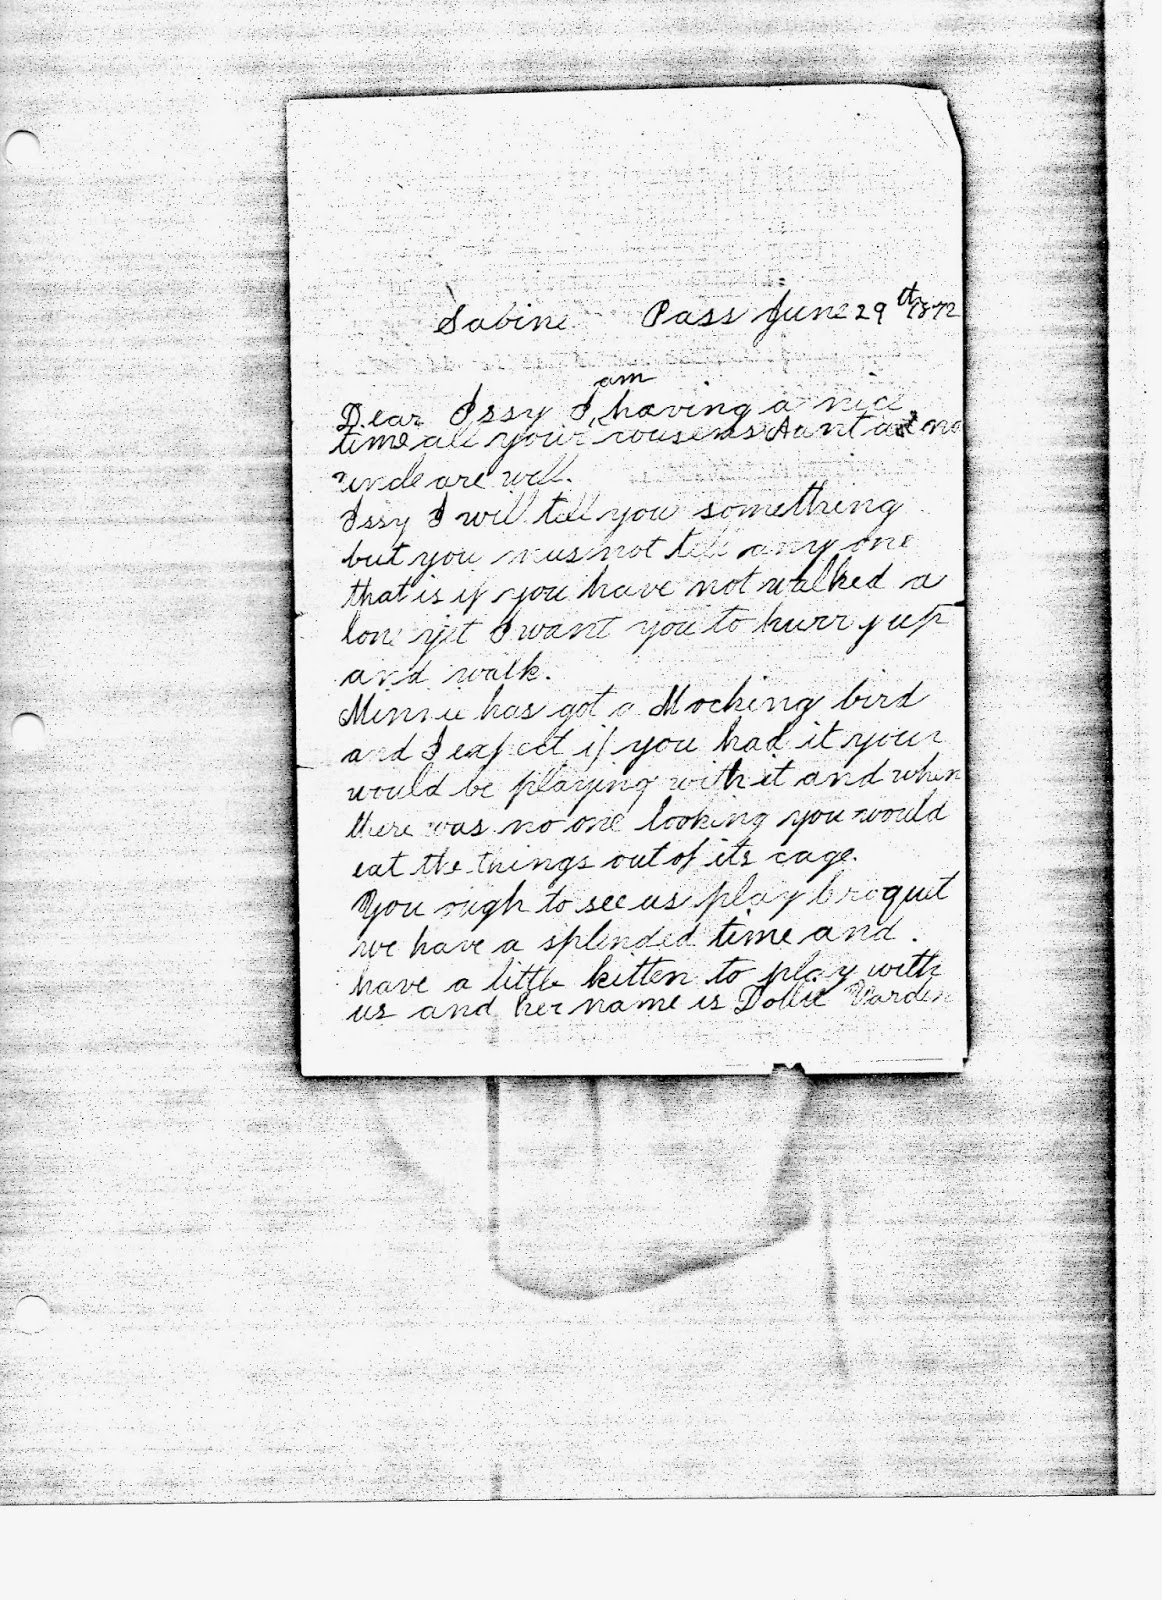 Sabine Pass June 29th 1872
am
Dear Issy I, having a nice
time all your cousens Aunt and
uncle are well.
Issy I will tell you something
but you mus not tell any one
that is if you have not walked a
lone yet I want you to hurry up
and walk.
Minnie has got a Mocking bird
and I expect if you had it your
would be playing with it and when
there was no one looking you would
eat the things out of its cage.
You ough to see us play broquet
we have a splended time and.
have a little kitten to play with
us and her name is Dollie Varden